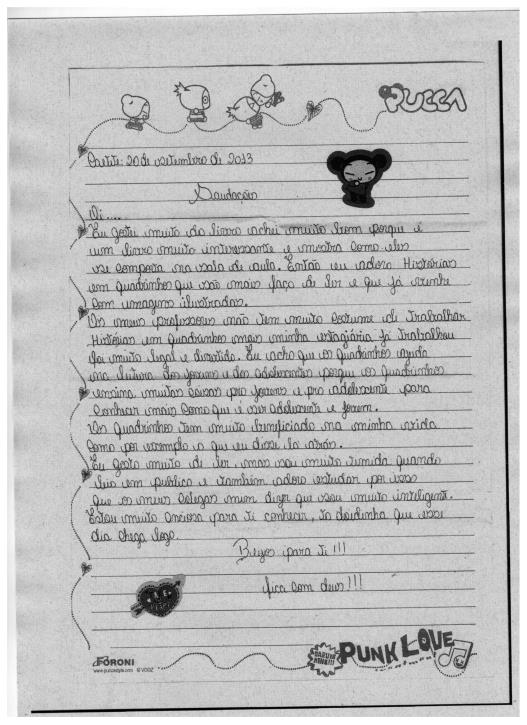 PUCCA
Caetité: 20 de setembro de 2013
Saudações
Oi....
Eu gostei muito do livro achei muito bom porque é
um livro muito interessante e mostra como eles
se comporta na sala de aula. Então eu adoro Histórias
em quadrinhos que são mais faço de ler e que já vinhe
com imagens ilustradas.
Os meus professores não tem muito costume de trabalhar
Histórias em quadrinhos mais minha estagiária já trabalhou
foi muito legal e divertido. Eu acho que os quadrinhos ajuda
na leitura dos jovens e dos adolescentes porque os quadrinhos
ensina muitas coisas pro jovens e pro adolescente para
conhecer mais como que é ser adolescente e jovem.
Os quadrinhos tem muito beneficiado na minha vida
como por exemplo o que eu disse la atrás.
Eu gosto muito de ler, mas sou muito timida quando
leio em publico e também adoro estudar por isso
que os meus colegas mum dizer que sou muito inteligent.
Estou muito anciosa para ti conhecer, to doidinha que esse
dia chega logo.
Beijos para ti!!!
fica com deus!!!
FORONI
PUNK LOVE